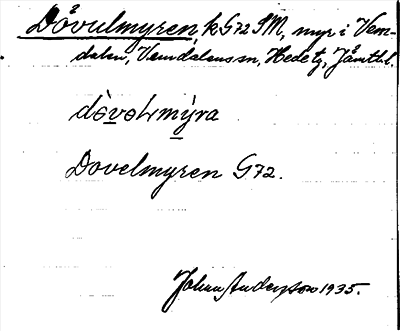 Dåvulmyren k G72 SM, myr i Vem-
dalen, Vemdalens sn, Hede tg, Jämtl.
dòvołmýra
Dovelmyren G72.
Johan Anderson 1935.